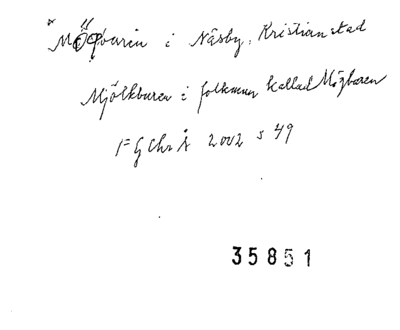 "MÖQbaren i Näsby, Kristianstad
Mjölkbaren i folkmun kallad Mögbaren
FGChr Å 2002 s 49
35851